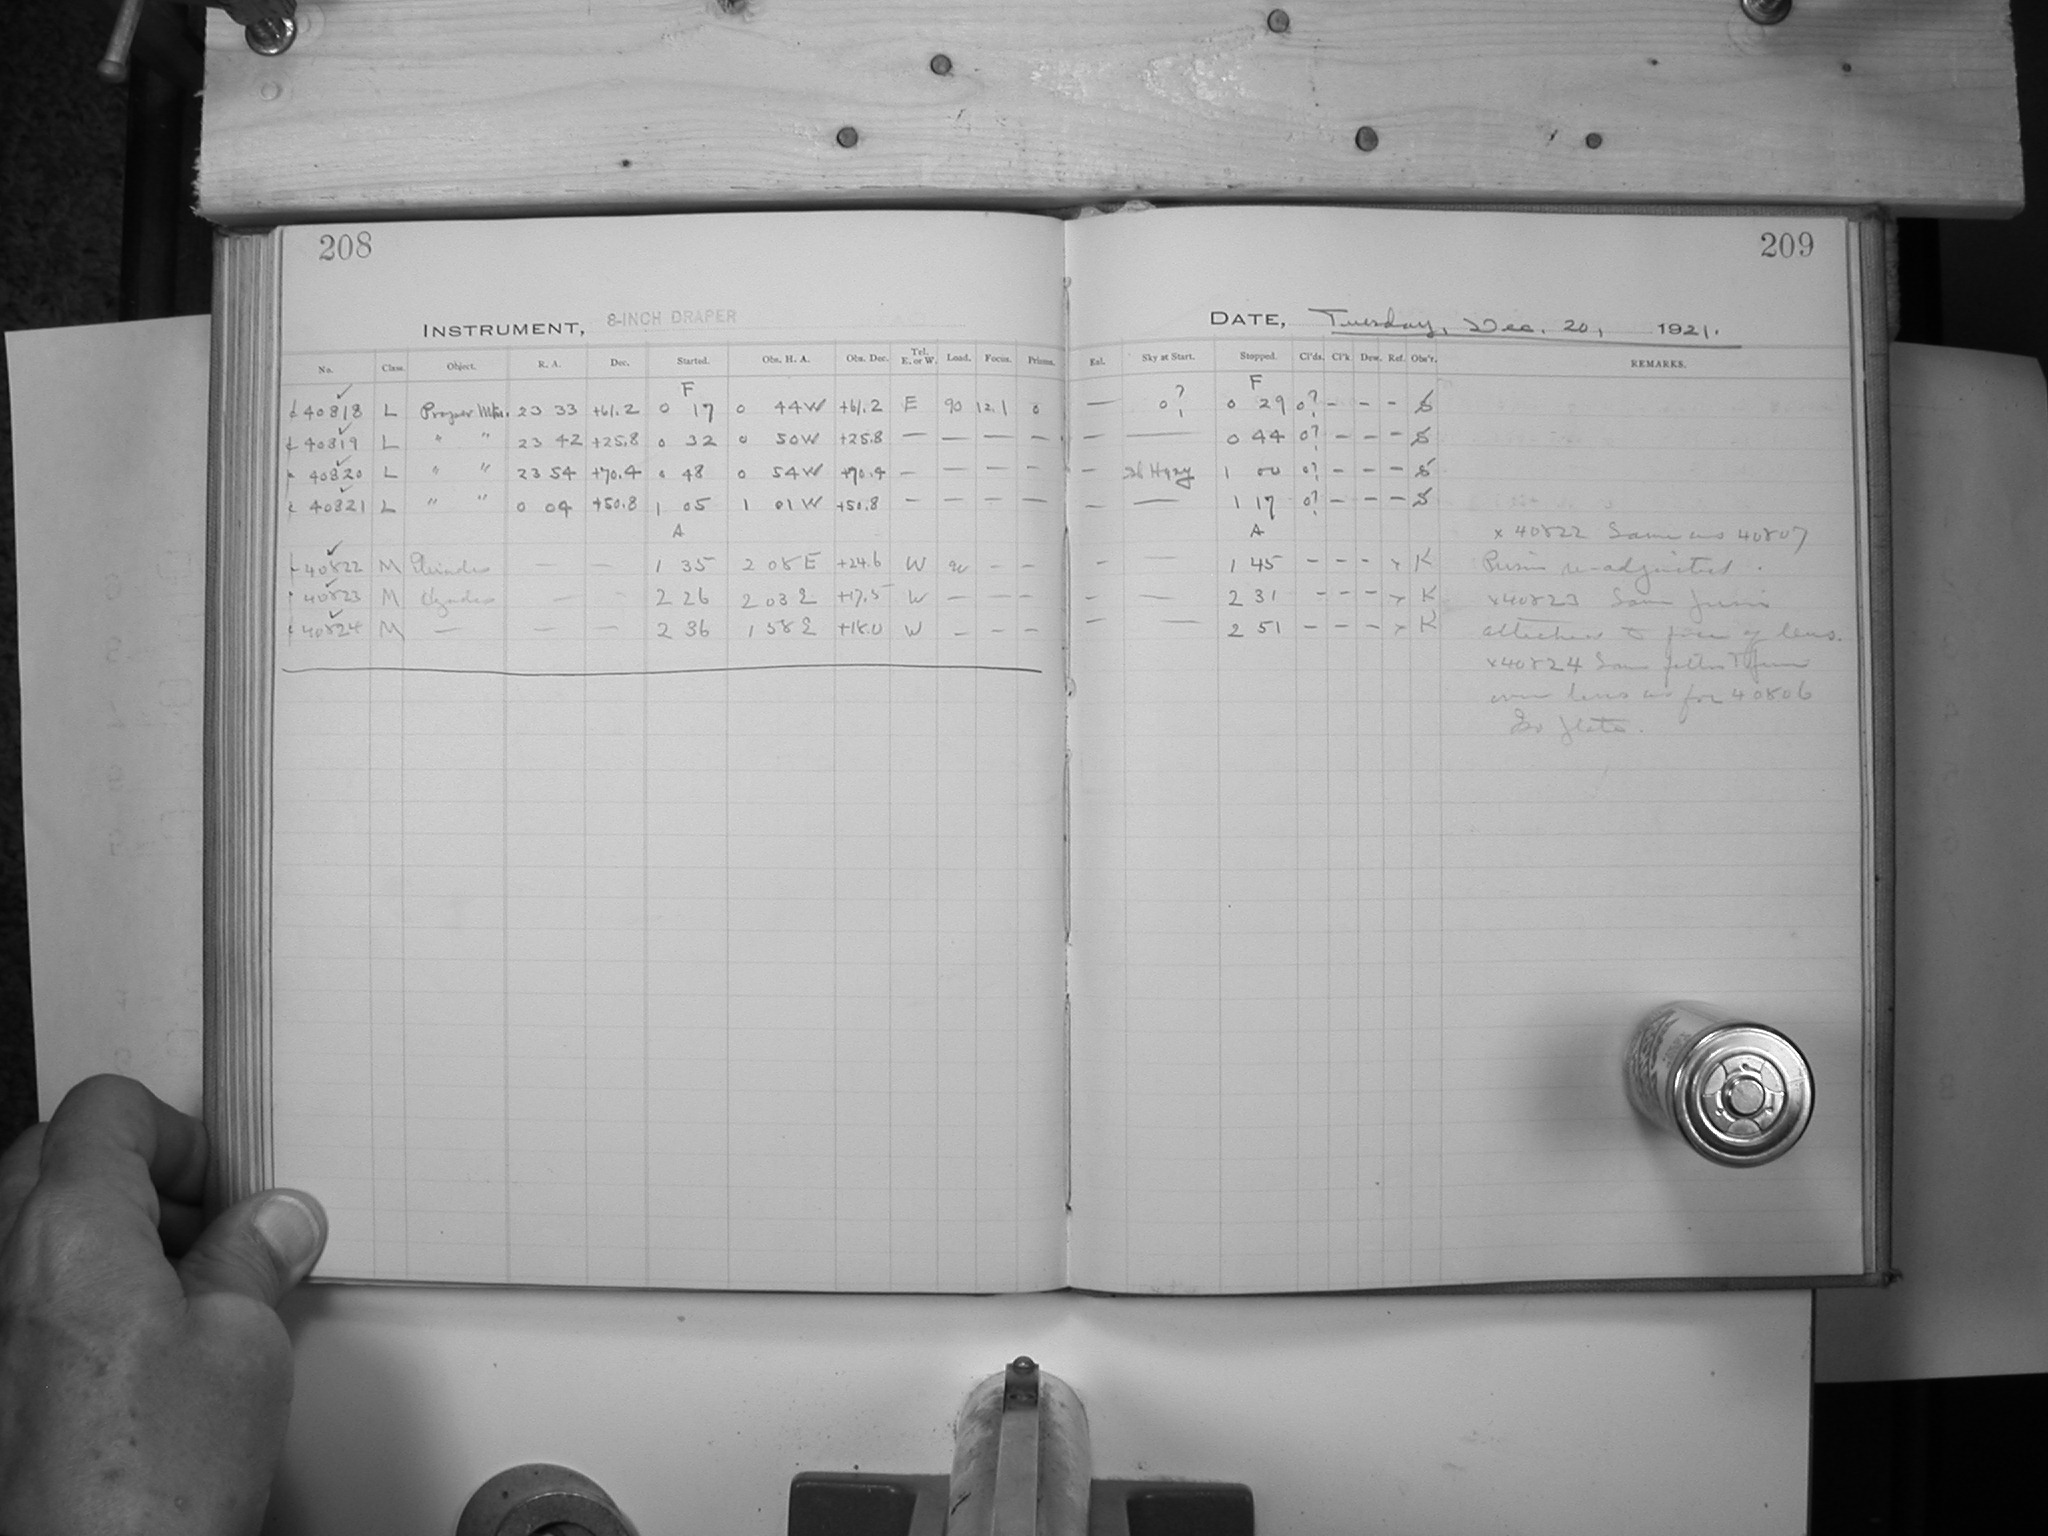 208
INSTRUMENT, 8-INCH DRAPER
No. Class. Object. R. A. Dec. Started. Obs. H. A. Obs. Dec. Tel. E. or W. Load. Focus. Prisms.
F
40818 L Proper Mtn. 23 33 +61.2 0 17 0 44 W +61.2 E 90 12.1 0
40819 L " " 23 42 +25.8 0 32 0 50 W +25.8 — — — —
40820 L " " 23 54 +70.4 0 48 0 54 W +70.4 — — — —
40821 L " " 0 04 +50.8 1 05 1 01 W +50.8 — — — —
A
40822 M Pleiades — — 1 35 2 08 E +24.6 W 90 — —
40823 M Hyades — — 2 26 2 03 E +17.5 W — — —
40824 M — — — 2 36 1 58 E +18.0 W — — —
209
DATE, Tuesday, Dec. 20, 1921.
Sky at Start. Stopped. Cl'ds. Cl'k. Dew. Ref. Obs'r. REMARKS.
F
— 0? 0 29 0? - - - S
— — 0 44 0? - - - S
— Sl Hazy 1 00 0? - - - S
— — 1 17 0? - - - S
A
x 40822 Same as 40807
- — 1 45 - - - x K Prism re-adjusted.
- — 2 31 - - - x K x40823 Same prism
- — 2 51 - - - x K attached to face of lens.
x40824 Same
over lens as for 40806